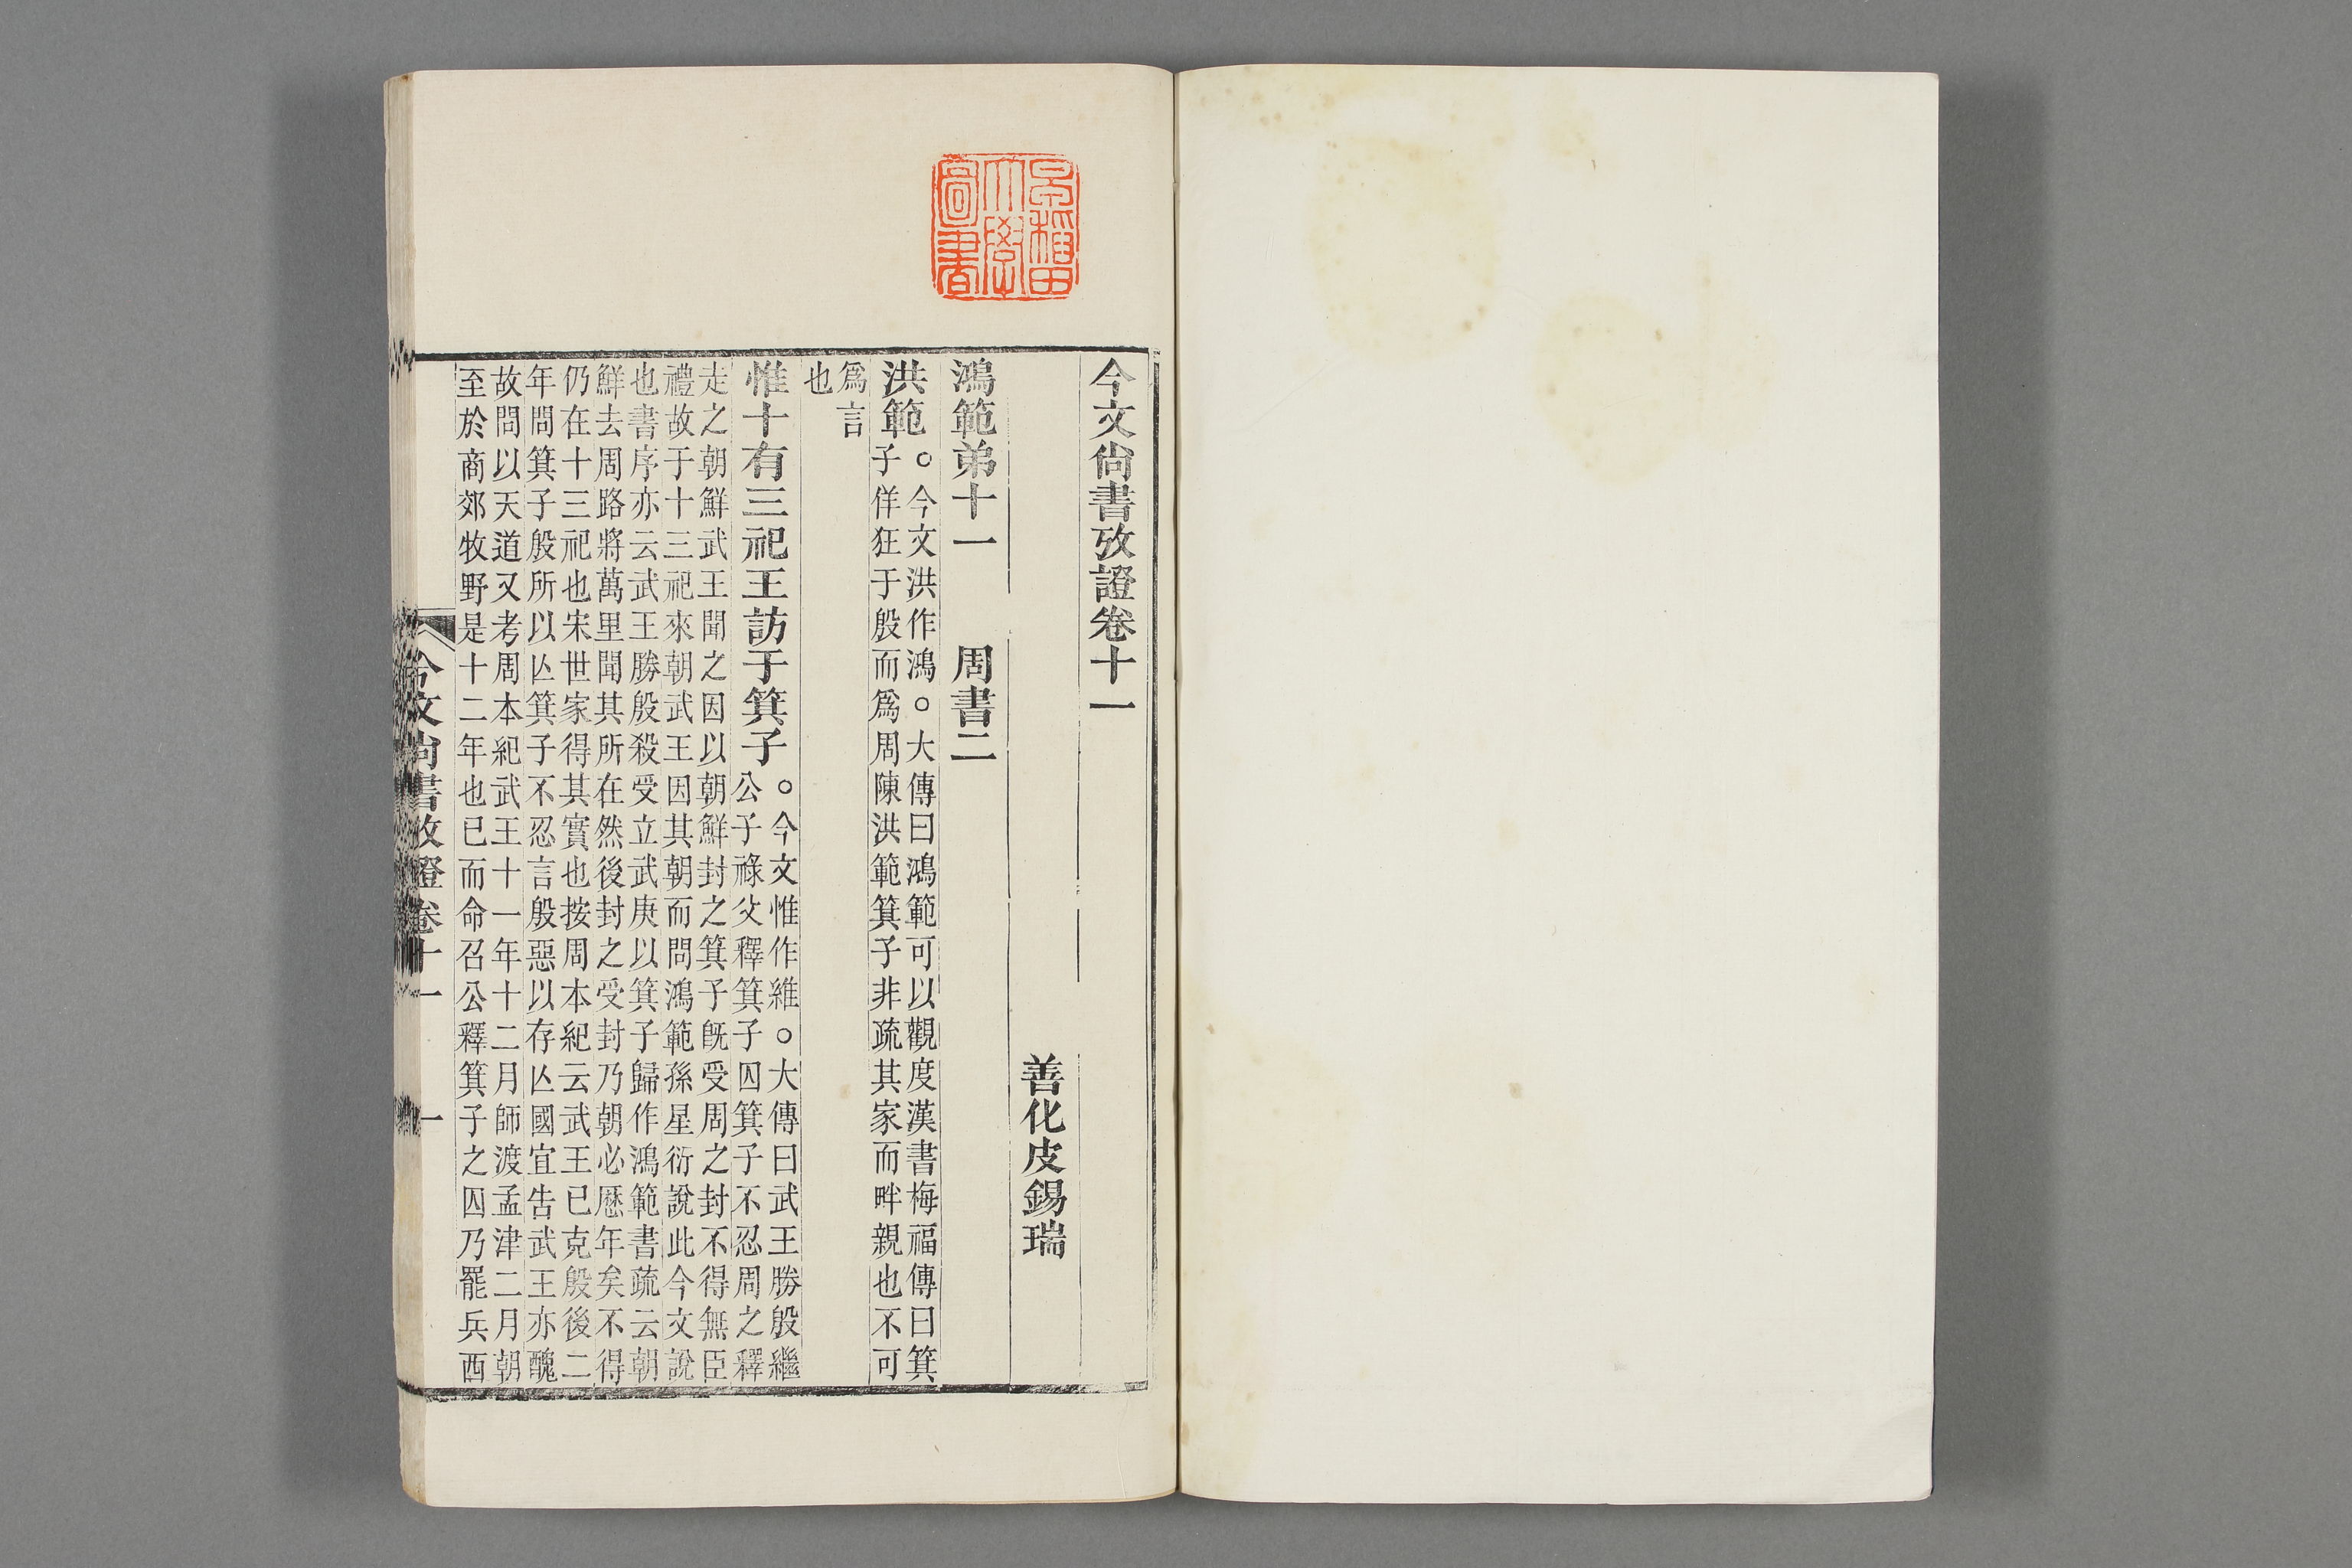 早稻田大學圖書
今文尙書攷證卷十一
善化皮錫瑞
鴻範弟十一　周書二
洪範○今文洪作鴻○大傳曰鴻範可以觀度漢書梅福傳曰箕
子佯狂于殷而爲周陳洪範箕子非疏其家而畔親也不可
爲言
也
惟十有三祀王訪于箕子○今文惟作維○大傳曰武王勝殷繼
公子祿父釋箕子囚箕子不忍周之釋
走之朝鮮武王聞之因以朝鮮封之箕子旣受周之封不得無臣
禮故于十三祀來朝武王因其朝而問鴻範孫星衍說此今文說
也書序亦云武王勝殷殺受立武庚以箕子歸作鴻範書疏云朝
鮮去周路將萬里聞其所在然後封之受封乃朝必歷年矣不得
仍在十三祀也宋世家得其實也按周本紀云武王已克殷後二
年問箕子殷所以亾箕子不忍言殷惡以存亾國宜告武王亦醜
故問以天道又考周本紀武王十一年十二月師渡孟津二月朝
至於商郊牧野是十二年也已而命召公釋箕子之囚乃罷兵西
今文尙書攷證卷十一　一